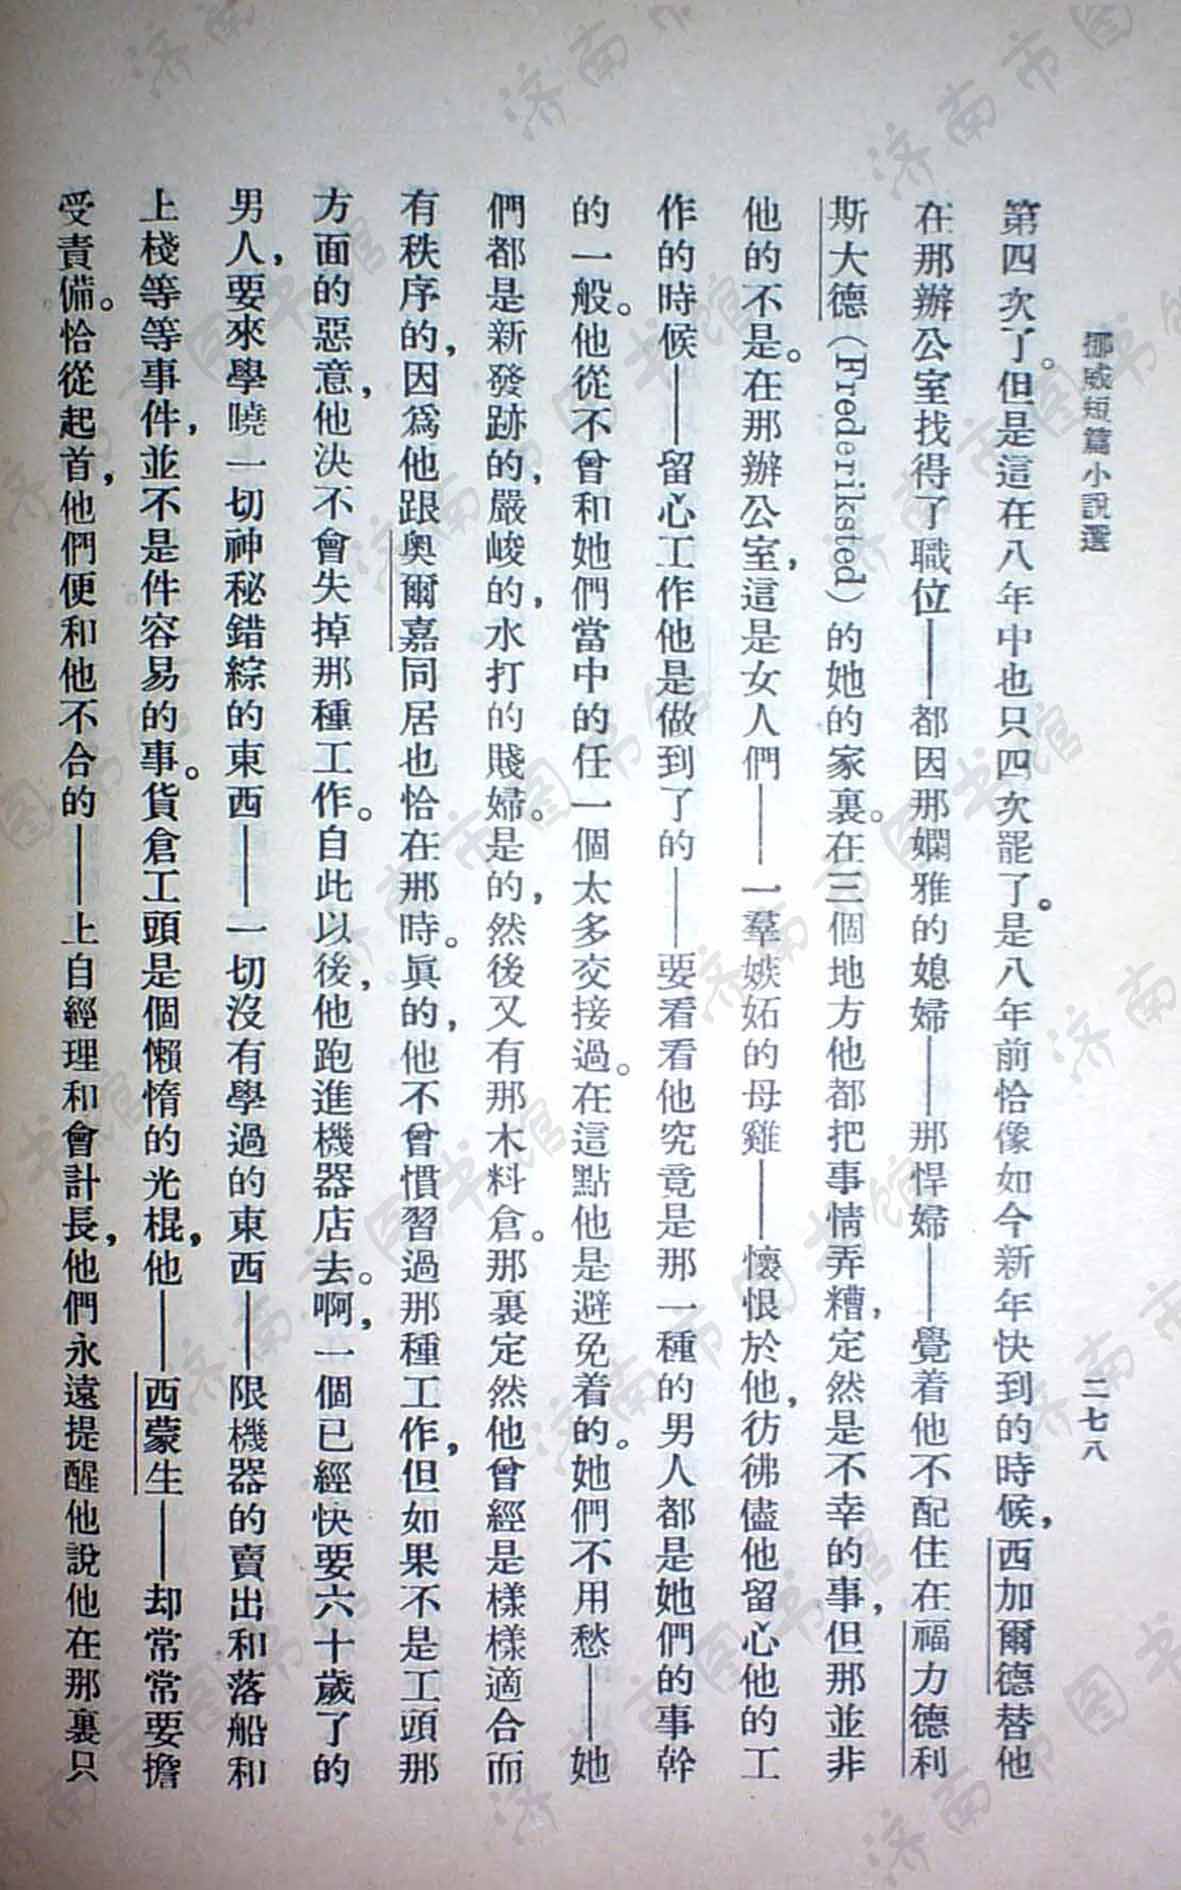 挪威短篇小說選
二七八
第四次了。但是這在八年中也只四次罷了。是八年前恰像如今新年快到的時候，西加爾德替他
在那辦公室找得了職位——都因那嫻雅的媳婦——那悍婦——覺着他不配住在福力德利
斯大德（Frederiksted）的她的家裏。在三個地方他都把事情弄糟，定然是不幸的事，但那並非
他的不是。在那辦公室，這是女人們——一羣嫉妬的母雞——懷恨於他，彷彿儘他留心他的工
作的時候——留心工作他是做到了的——要看看他究竟是那一種的男人都是她們的事幹
的一般。他從不曾和她們當中的任一個太多交接過。在這點他是避免着的。她們不用愁——她
們都是新發跡的，嚴峻的，水打的賤婦。是的，然後又有那木料倉。那裏定然他曾經是樣樣適合而
有秩序的，因爲他跟奧爾嘉同居也恰在那時。眞的，他不曾慣習過那種工作，但如果不是工頭那
方面的惡意，他決不會失掉那種工作。自此以後，他跑進機器店去。啊，一個已經快要六十歲了的
男人，要來學曉一切神秘錯綜的東西——一切沒有學過的東西——限機器的賣出和落船和
上棧等等事件，並不是件容易的事。貨倉工頭是個懶惰的光棍，他——西蒙生——却常常要擔
受責備。恰從起首，他們便和他不合的——上自經理和會計長，他們永遠提醒他說他在那裏只
濟南市图书馆